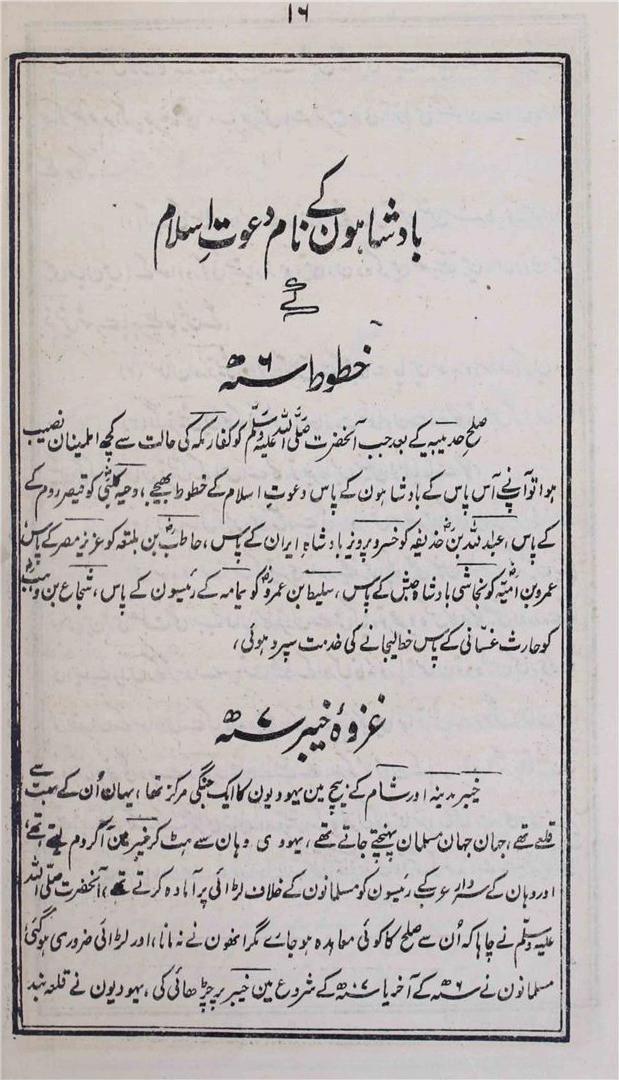 ۱۶
بادشاہون کے نام دعوتِ اسلام
کے
خطوط ۶ھ
صلح حدیبیہ کے بعد جب آنحضرت صلّی اللہ علیہ وسلّم کو کفار مکہ کی حالت سے کچھ اطمینان نصیب
ہوا تو آپنے آس پاس کے بادشاہون کے پاس دعوتِ اسلام کے خطوط بھیجے، دحیہ کلبیؓ کو قیصر روم کے
کے پاس، عبداللہ بنؓ حذیفہ کو خسرو پرویز بادشاہ ایران کے پاس، حاطبؓ بن بلتعہ کو عزیز مصر کے پاس
عمرو بن امیّہؓ کو نجاشی بادشاہ حبش کے پاس، سلیط بن عمروؓ کو یمامہ کے رئیسون کے پاس، شجاع بن وہبؓ
کو حارث غسانی کے پاس خط لیجانے کی خدمت سپرد ہوئی،
غزوۂ خیبر ۷ھ
خیبر مدینہ اور شام کے بیچ مین یہودیون کا ایک جنگی مرکز تھا، یہان اُن کے بہت سے
قلعے تھے، جہان جہان مسلمان پہنچتے جاتے تھے، یہودی وہان سے ہٹ کر خیبر مین آکر دم لیتے تھے،
اور وہان کے سردار عرب کے رئیسون کو مسلمانون کے خلاف لڑائی پر آمادہ کرتے تھے، آنحضرت صلّی اللہ
علیہ وسلّم نے چاہا کہ اُن سے صلح کا کوئی معاہدہ ہو جاے مگر انھون نے نہ مانا، اور لڑائی ضروری ہو گئی،
مسلمانون نے ۶ھ کے آخر یا ۷ھ کے شروع مین خیبر پر چڑھائی کی، یہودیون نے قلعہ بند